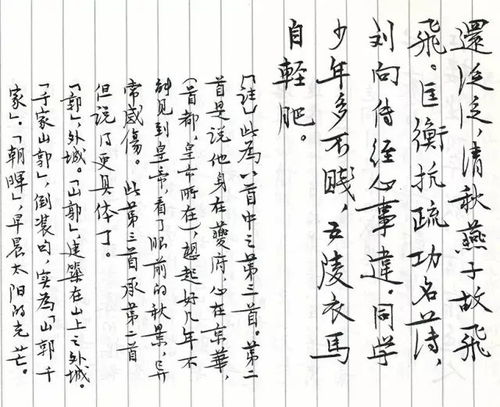 還泛泛,清秋燕子故飛
飛。匡衡抗疏功名薄,
刘向传经心事違。同学
少年多不賤,五陵衣馬
自輕肥。
「註」此為八首中之第三首。第二
首是说他身在夔府,心在京華,
(首都,皇帝所在),想起好几年不
能见到皇帝,看了眼前的秋景,異
常感傷。此第三首承第二首
但说得更具体了。
「郭」,外城。「山郭」,建築在山上之外城。
「千家山郭」,倒装句,实為「山郭千
家」。「朝暉」,早晨太阳的光芒。